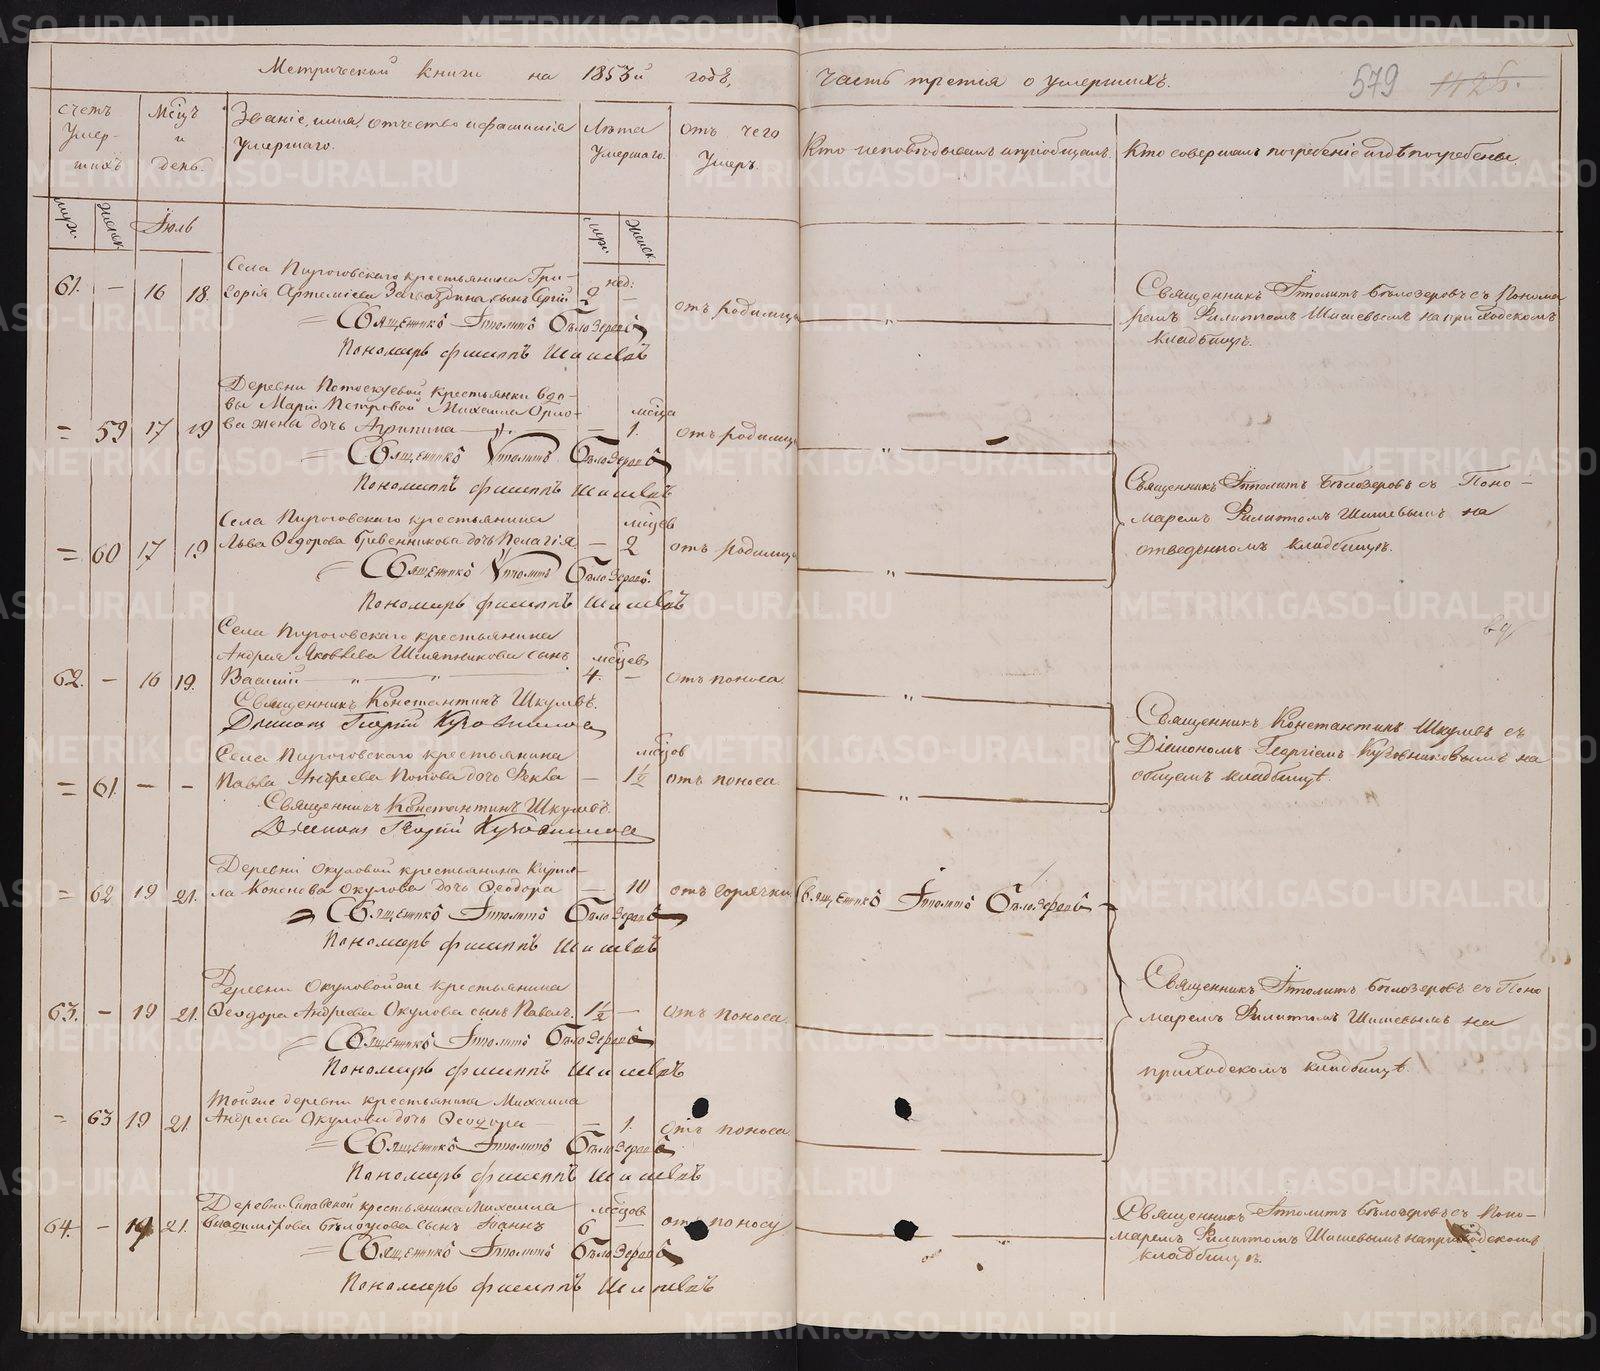 Метрической книги на 1853й годъ,
часть третия о умершихъ.
579
1425.
счетъ Умер-шихъ
Мѣцъ и день.
Званіе, имя, отчество и фамилія умершаго.
Лѣта Умершаго.
отъ чего Умеръ.
Кто исповѣдывалъ и пріобщалъ.
Кто совершалъ погребеніе и гдѣ погребены.
муж.
женск.
Іюль
муж.
женск.
Села Пироговскаго крестьянина Гри-
нед:
61. — 16 18. горія Артеміева Загвоздина сынъ 2 — отъ родимца
Священникъ Ипполитъ Бѣлозеровъ
Пономарь Филиппъ Шишевъ
Священникъ Ипполитъ Бѣлозеровъ съ Понома
ремъ Филиппомъ Шишевымъ на приходскомъ
кладбищѣ.
Деревни Потоскуевой крестьянки вдо-
вы Маріи Петровой Михаила Орло-
мѣсяца
= 59 17 19 ва жена дочь Агрипина — 1. отъ родимца
Священникъ Ипполитъ Бѣлозеровъ
Пономарь Филиппъ Шишевъ
Села Пироговскаго крестьянина
мѣсяцевъ
= 60 17 19 Льва Ѳедорова Гребенникова дочь Пелагія — 2 отъ родимца
Священникъ Ипполитъ Бѣлозеровъ.
Пономарь Филиппъ Шишевъ
Священникъ Ипполитъ Бѣлозеровъ съ Поно-
маремъ Филиппомъ Шишевымъ на
отведенномъ кладбищѣ.
Села Пироговскаго крестьянина
Андрея Яковлева Шляпникова сынъ
мѣсяцевъ
62. — 16 19. Василий 4. — отъ поноса
Священникъ Константинъ Шкулевъ.
Діаконъ Георгій Кузовниковъ
Села Пироговскаго крестьянина
мѣсяцовъ
= 61. — — Павла Андреева Попова дочь Ѳекла — 1½ отъ поноса
Священникъ Константинъ Шкулевъ.
Діаконъ Георгій Кузовниковъ
Священникъ Константинъ Шкулевъ съ
Діакономъ Георгіемъ Кузовниковымъ на
общемъ кладбищѣ.
Деревни Окуловой крестьянина Кирил-
= 62 19 21. ла Кононова Окулова дочь Ѳеодора — 10 отъ горячки Священникъ Ипполитъ Бѣлозеровъ
Священникъ Ипполитъ Бѣлозеровъ
Пономарь Филиппъ Шишевъ
Деревни Окуловой же крестьянина
63. — 19 21. Ѳеодора Андреева Окулова сынъ Павелъ. 1½ — отъ поноса
Священникъ Ипполитъ Бѣлозеровъ
Пономарь Филиппъ Шишевъ
Священникъ Ипполитъ Бѣлозеровъ съ Поно
маремъ Филиппомъ Шишевымъ на
приходскомъ кладбищѣ.
Тойже деревни крестьянина Михаила
= 63 19 21 Андреева Окулова дочь Ѳеодора — 1. отъ поноса
Священникъ Ипполитъ Бѣлозеровъ
Пономарь Филиппъ Шишевъ
Деревни Сипавской крестьянина Михаила
мѣсяцовъ
64. — 19 21. Владимірова Бѣлоусова сынъ Іоаннъ 6 — отъ поносу
Священникъ Ипполитъ Бѣлозеровъ
Пономарь Филиппъ Шишевъ
Священникъ Ипполитъ Бѣлозеровъ съ Поно-
маремъ Филиппомъ Шишевымъ на приходскомъ
кладбищѣ.
METRIKI.GASO-URAL.RU